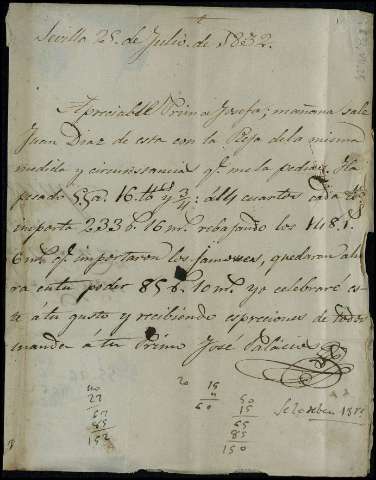 Sevilla 25. de Julio. de 1832.
Apreciable Prima Josefa; mañana sale
Juan Diaz de esta con la Pesa dela misma
medida y circunstancias q.e me la pediste. Ha
pesado 55 a. 16. tt.s y 3/4: á 14 cuartos cada
importa 233 r. 16 m.s rebajando los 148. r.
6 m.s q.e importaron los jamones, quedaran aho
ra entu poder 85 r. 10 m.s yo celebraré es
te á tu gusto y recibiendo espreciones de todos
manda á tu Primo José Palacios
20 15 50
22 60 15
67 65
85 85
152 150